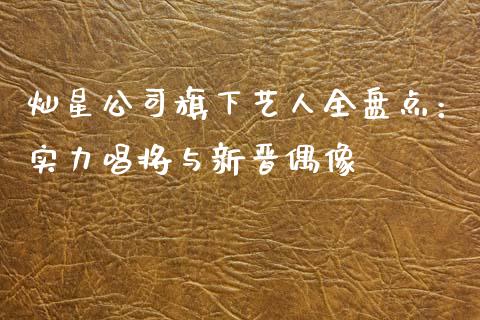 灿星公司旗下艺人全盘点：
实力唱将与新晋偶像